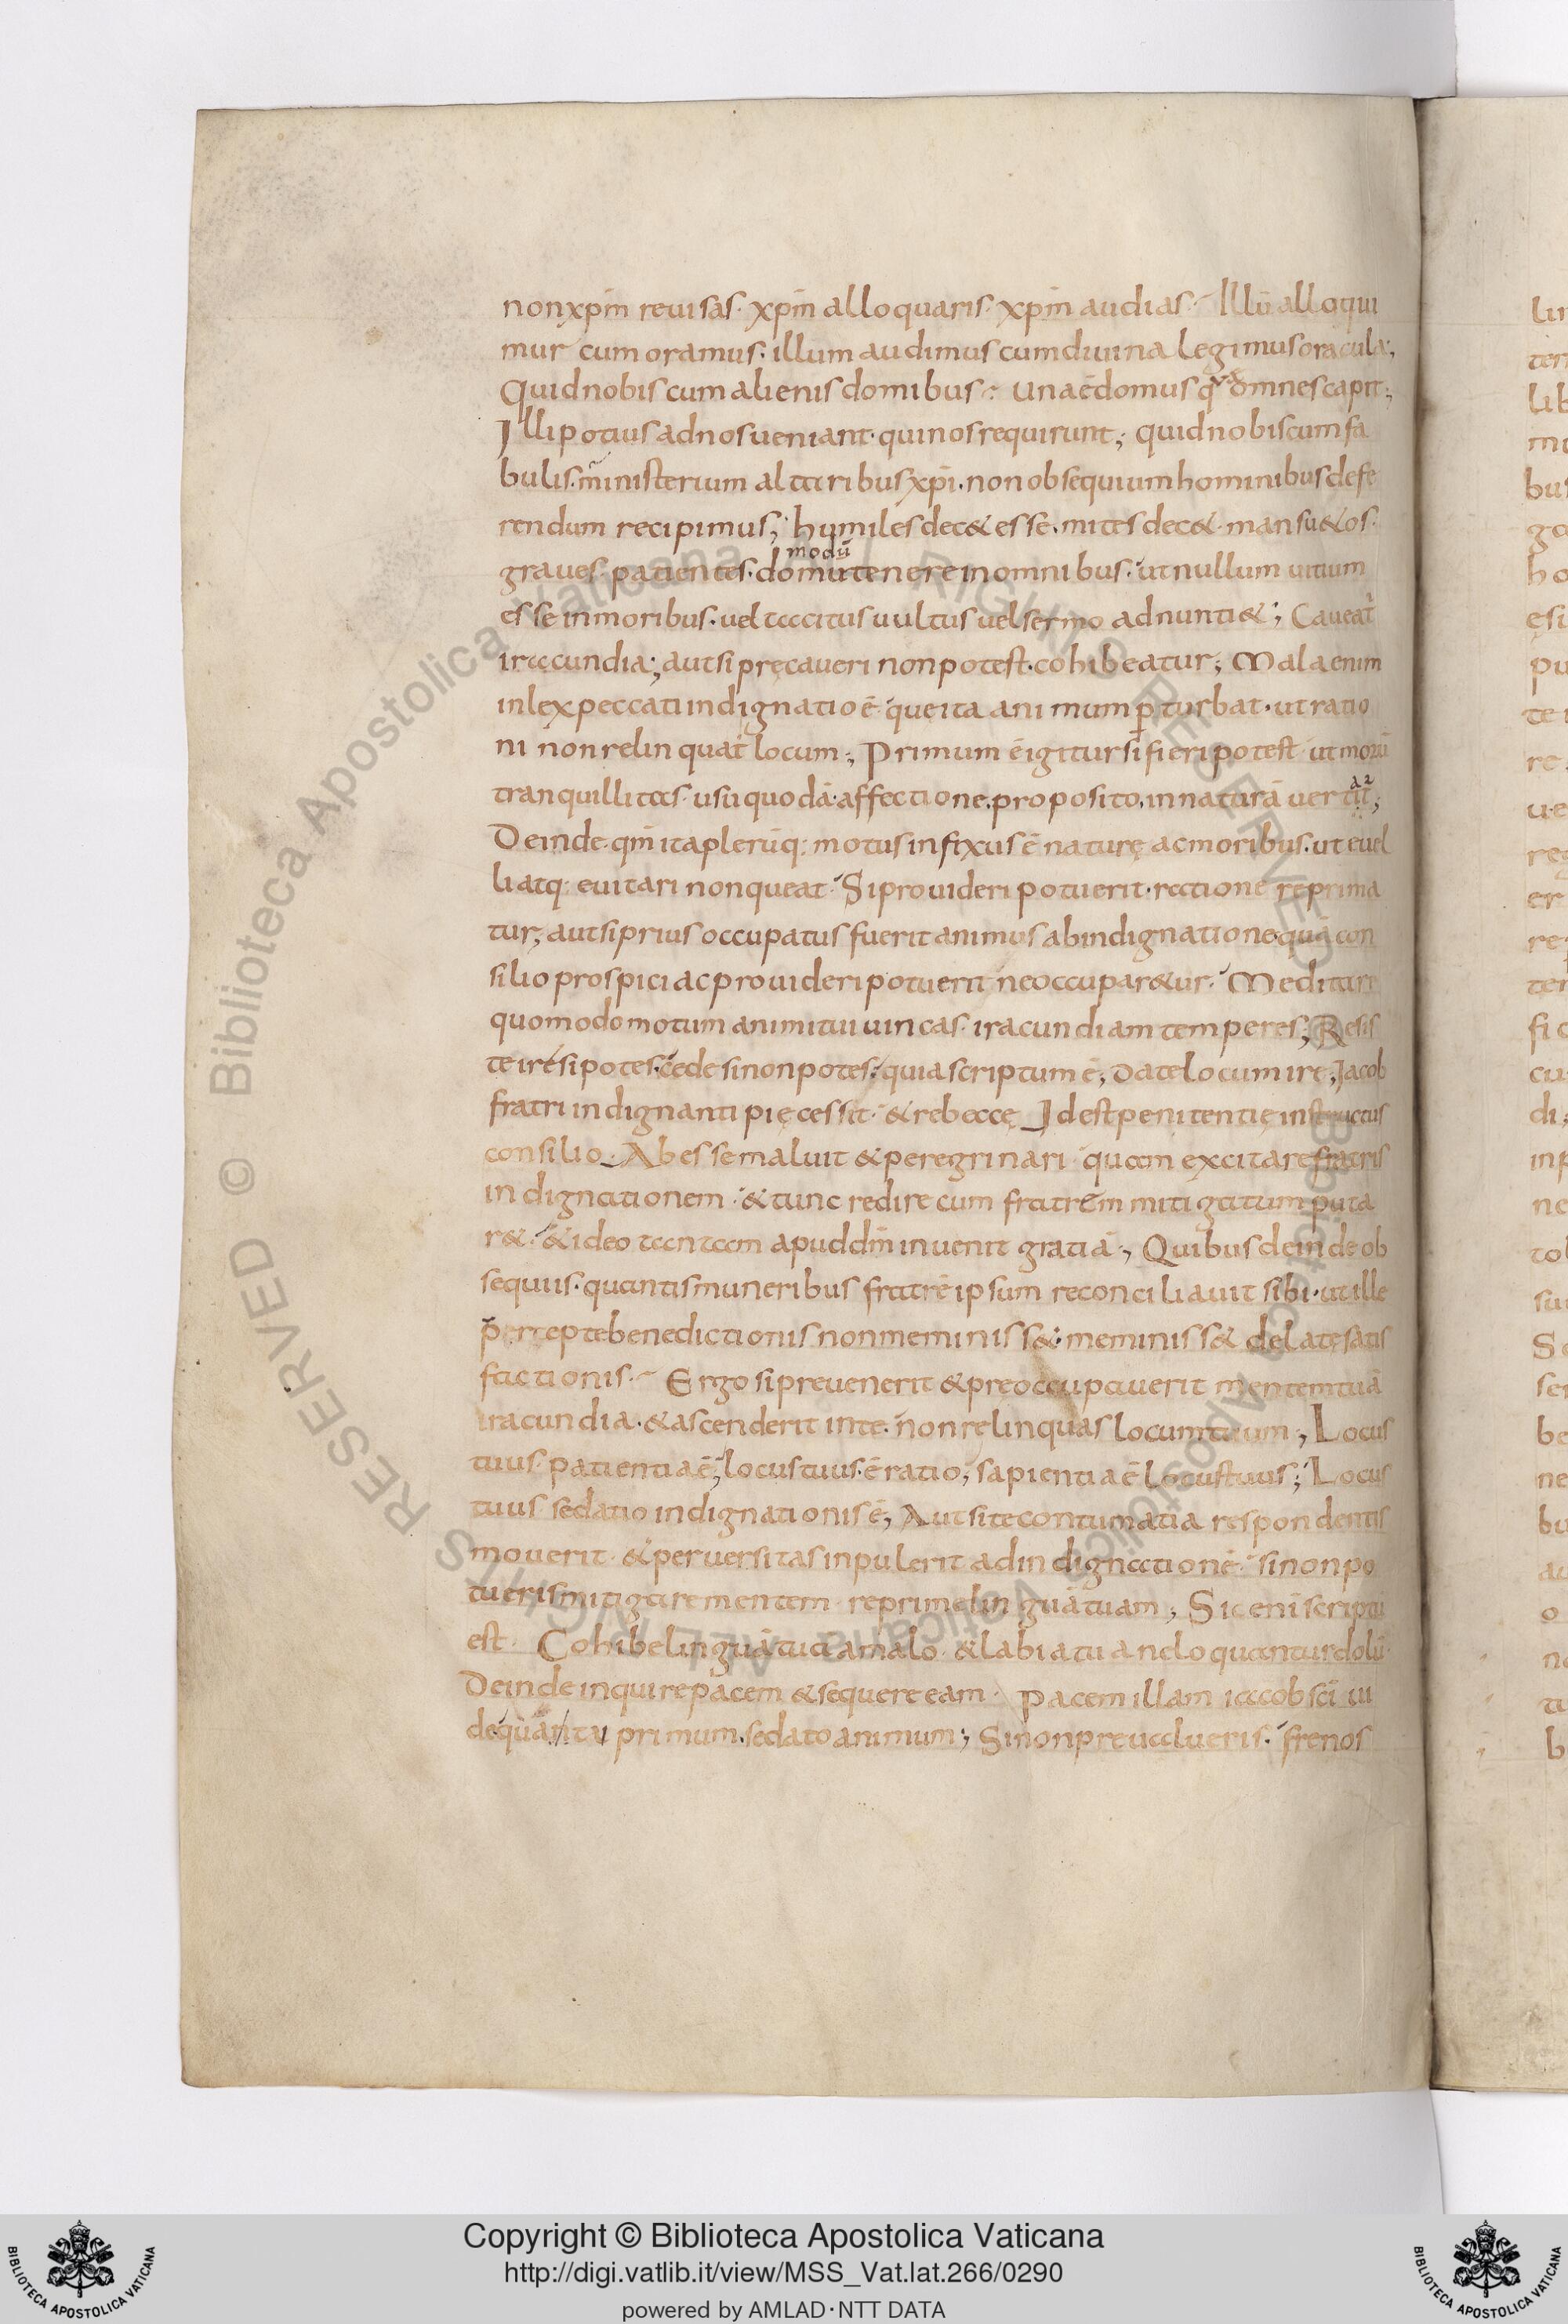 non xpm̄ reuisas· xpm̄ alloquaris· xpm̄ audias· Illū alloqui
mur cum oramus· illum audimus cum diuina legimus oracula;
Quid nobis cum alienis domibus· Una ē domus q̄ omnes capit;
Illi potius ad nos ueniant· qui nos requirunt; quid nobis cum fa
bulis· ministerium altaribus xpī· non obsequium hominibus defe
rendum recipimus; humiles dec& esse· mites dec&· mansu&os·
modū
graues· patientes· domū tenere in omnibus· ut nullum uitium
esse in moribus· uel tacitus uultus uel sermo adnunti&; Caueat̄
iracundia; aut si pręcaueri non potest· cohibeatur; Mala enim
inlex peccati indignatio ē que ita animum ꝑturbat· ut ratio
ni non relinquat locum; Primum ē igitur si fieri potest ut morū
tranquillitas· usu quodā· affectione· proposito· in naturā uertit̄;
Deinde qm̄ ita plerūq: motus infixus ē naturę ac moribus· ut euel
li atq: euitari non queat· Si prouideri potuerit· ratione reprima
tur; aut si prius occupatus fuerit animus ab indignatione quā con
silio prospici ac prouideri potuerit ne occupar&ur· Meditare
quomodo motum animi tui uincas· iracundiam temperes; Resis
te irę si potes· cede si non potes· quia scriptum ē; Date locum irę; Jacob
fratri indignanti pię cessit· & rebeccę Id est penitentię instructus
consilio· Abesse maluit & peregrinari quam excitare fratris
indignationem· & tunc redire cum fratrem mitigatum puta
r&· & ideo tantam apud dm̄ inuenit gratiā; Quibus deinde ob
sequiis· quantis muneribus fratrē ipsum reconciliauit sibi· ut ille
perceptę benedictionis non meminiss&· meminiss& delatę satis
factionis· Ergo si preuenerit & preoccupauerit mentem tuā
iracundia· & ascenderit in te· non relinquas locum tuum; Locus
tuus patientia ē; locus tuus ē ratio; sapientia ē locus tuus; Locus
tuus sedatio indignationis ē; Aut si te contumatia respondentis
mouerit· & peruersitas inpulerit ad indignationē· si non po
tueris mitigare mentem· reprime linguā tuam; Sic enī scriptū
est· Cohibe linguā tuā a malo· & labia tua ne loquantur dolū·
Deinde inquire pacem & sequere eam· Pacem illam iacob scī ui
de quanta primum· sedato animum; Si non preualueris· frenos
Copyright © Biblioteca Apostolica Vaticana
http://digi.vatlib.it/view/MSS_Vat.lat.266/0290
powered by AMLAD·NTT DATA
BIBLIOTECA APOSTOLICA VATICANA
BIBLIOTECA APOSTOLICA VATICANA